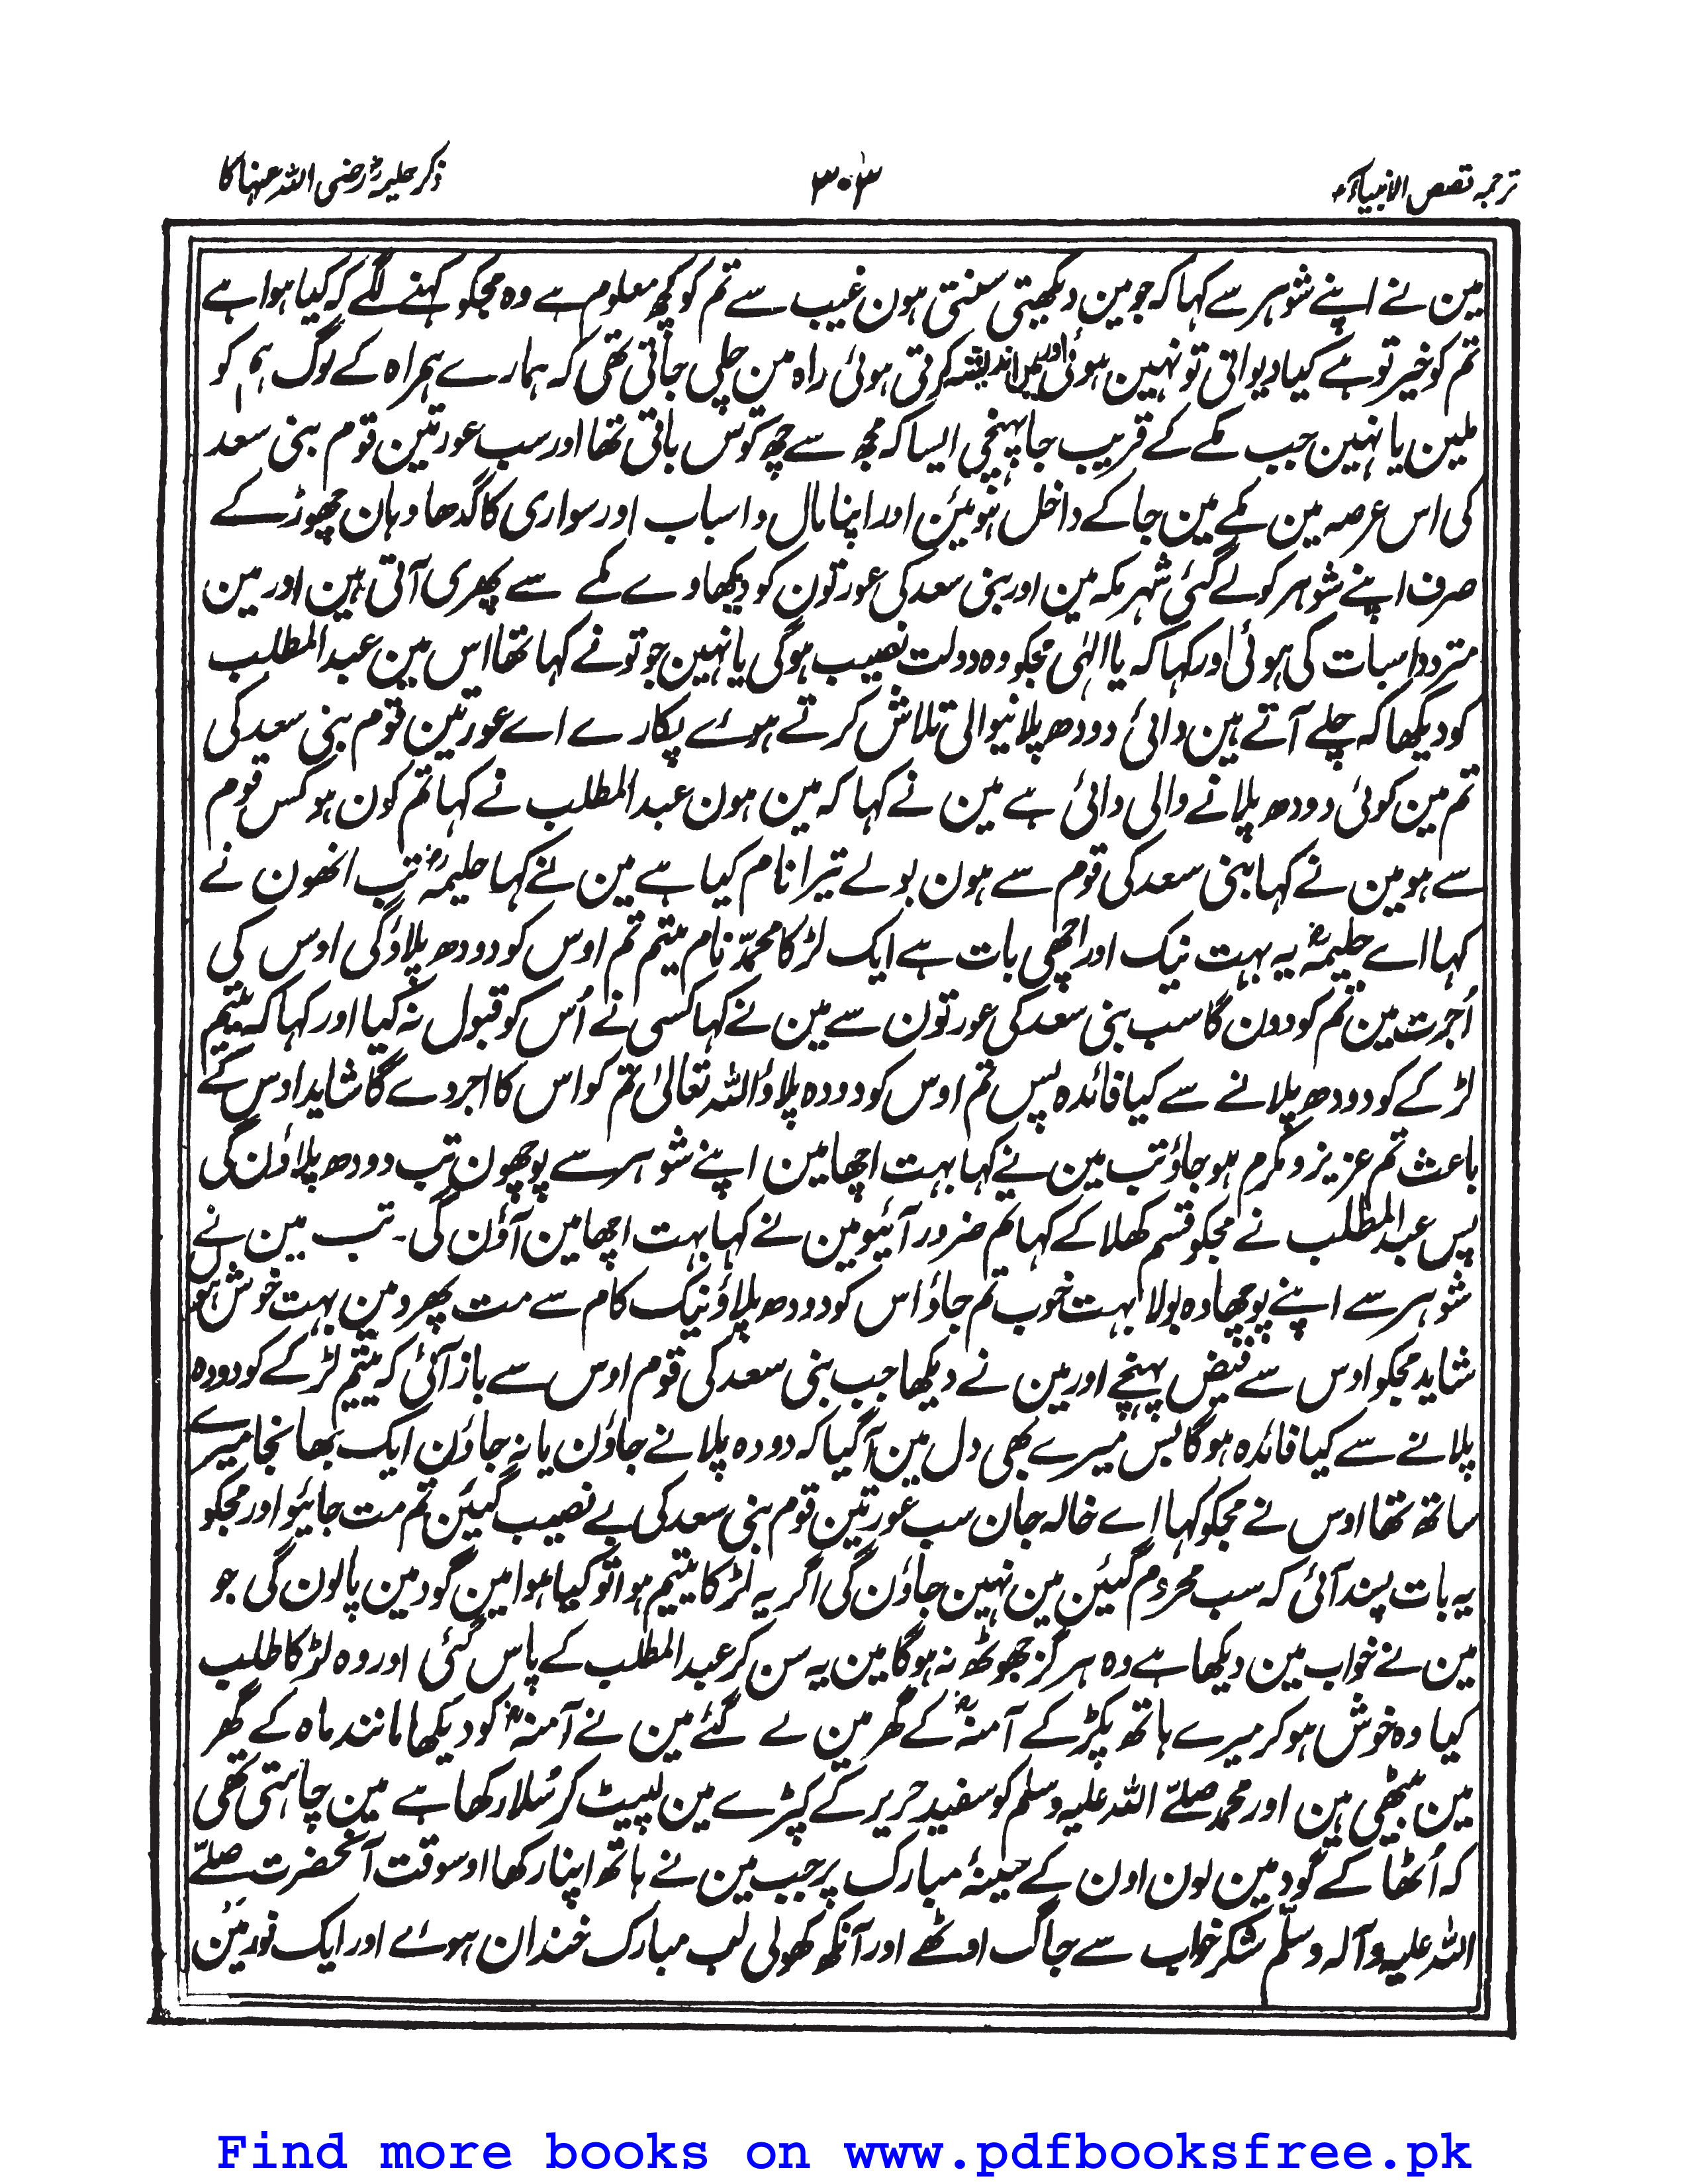 ترجمہ قصص الانبیاء
۳۰۳
ذکر حلیمہؓ رضی اللہ عنہا کا
مین نے اپنے شوہر سے کہا کہ جو مین دیکھتی سنتی ہون غیب سے تم کو کچھ معلوم ہے وہ مجکو کہنے لگے کہ کیا ہوا ہے
تم کو خیر تو ہے کیا دیوانی تو نہین ہوئی اور مین اندیشہ کرتی ہوئی راہ مین چلی جاتی تھی کہ ہمارے ہمراہ کے لوگ ہم کو
ملین یا نہین جب مکے کے قریب جا پہنچی ایسا کہ مجھ سے چھ کوس باقی تھا اور سب عورتین قوم بنی سعد
کی اس عرصہ مین مکے مین جا کے داخل ہوئین اور اپنا مال و اسباب اور سواری کا گدھا وہان چھوڑ کے
صرف اپنے شوہر کو لے گئی شہر مکہ مین اور بنی سعد کی عورتون کو دیکھا وے مکے سے پھری آتی ہین اور مین
متردد اسبات کی ہوئی اور کہا کہ یا الٰہی مجکو وہ دولت نصیب ہوگی یا نہین جو تو نے کہا تھا اس مین عبد المطلب
کو دیکھا کہ چلے آتے ہین دائی دودھ پلانیوالی تلاش کرتے ہوئے پکارے اے عورتین قوم بنی سعد کی
تم مین کوئی دودھ پلانے والی دائی ہے مین نے کہا کہ مین ہون عبد المطلب نے کہا تم کون ہو کس قوم
سے ہو مین نے کہا بنی سعد کی قوم سے ہون بولے تیرا نام کیا ہے مین نے کہا حلیمہؓ تب انھون نے
کہا اے حلیمہؓ یہ بہت نیک اور اچھی بات ہے ایک لڑکا محمدؐ نام یتیم تم اوس کو دودھ پلاؤگی اوس کی
اُجرت مین تم کو دون گا سب بنی سعد کی عورتون سے مین نے کہا کسی نے اُس کو قبول نہ کیا اور کہا کہ یتیم
لڑکے کو دودھ پلانے سے کیا فائدہ پس تم اوس کو دودہ پلاؤ اللہ تعالیٰ تم کو اس کا اجر دے گا شاید اوس کے
باعث تم عزیز و مکرم ہو جاؤ تب مین نے کہا بہت اچھا مین اپنے شوہر سے پوچھون تب دودھ پلاؤن گی
پس عبد المطلب نے مجکو قسم کھلا کے کہا تم ضرور آئیو مین نے کہا بہت اچھا مین آؤن گی۔ تب مین نے
شوہر سے اپنے پوچھا وہ بولا بہت خوب تم جاؤ اس کو دودھ پلاؤ نیک کام سے مت پھرو مین بہت خوش ہون
شاید مجکو اوس سے فیض پہنچے اور مین نے دیکھا جب بنی سعد کی قوم اوس سے باز آئی کہ یتیم لڑکے کو دودہ
پلانے سے کیا فائدہ ہوگا بس میرے بھی دل مین آ گیا کہ دودہ پلانے جاؤن یا نہ جاؤن ایک بھانجا میرے
ساتھ تھا اوس نے مجکو کہا اے خالہ جان سب عورتین قوم بنی سعد کی بے نصیب گئین تم مت جائیو اور مجکو
یہ بات پسند آئی کہ سب محروم گئین مین نہین جاؤن گی اگر یہ لڑکا یتیم ہوا تو کیا ہوا مین گود مین پالون گی جو
مین نے خواب مین دیکھا ہے وہ ہرگز جھوٹھ نہ ہوگا مین یہ سن کر عبد المطلب کے پاس گئی اور وہ لڑکا طلب
کیا وہ خوش ہو کر میرے ہاتھ پکڑ کے آمنہؓ کے گھر مین لے گئے مین نے آمنہؓ کو دیکھا مانند ماہ کے گھر
مین بیٹھی ہین اور محمد صلے اللہ علیہ وسلم کو سفید حریر کے کپڑے مین لپیٹ کر سُلا رکھا ہے مین چاہتی تھی
کہ اُٹھا کے گود مین لون اون کے سینۂ مبارک پر جب مین نے ہاتھ اپنا رکھا اوسوقت آنحضرت صلے
اللہ علیہ وآلہ وسلم شکر خواب سے جاگ اوٹھے اور آنکھ کھولی لب مبارک خندان ہوئے اور ایک نور مین
Find more books on www.pdfbooksfree.pk